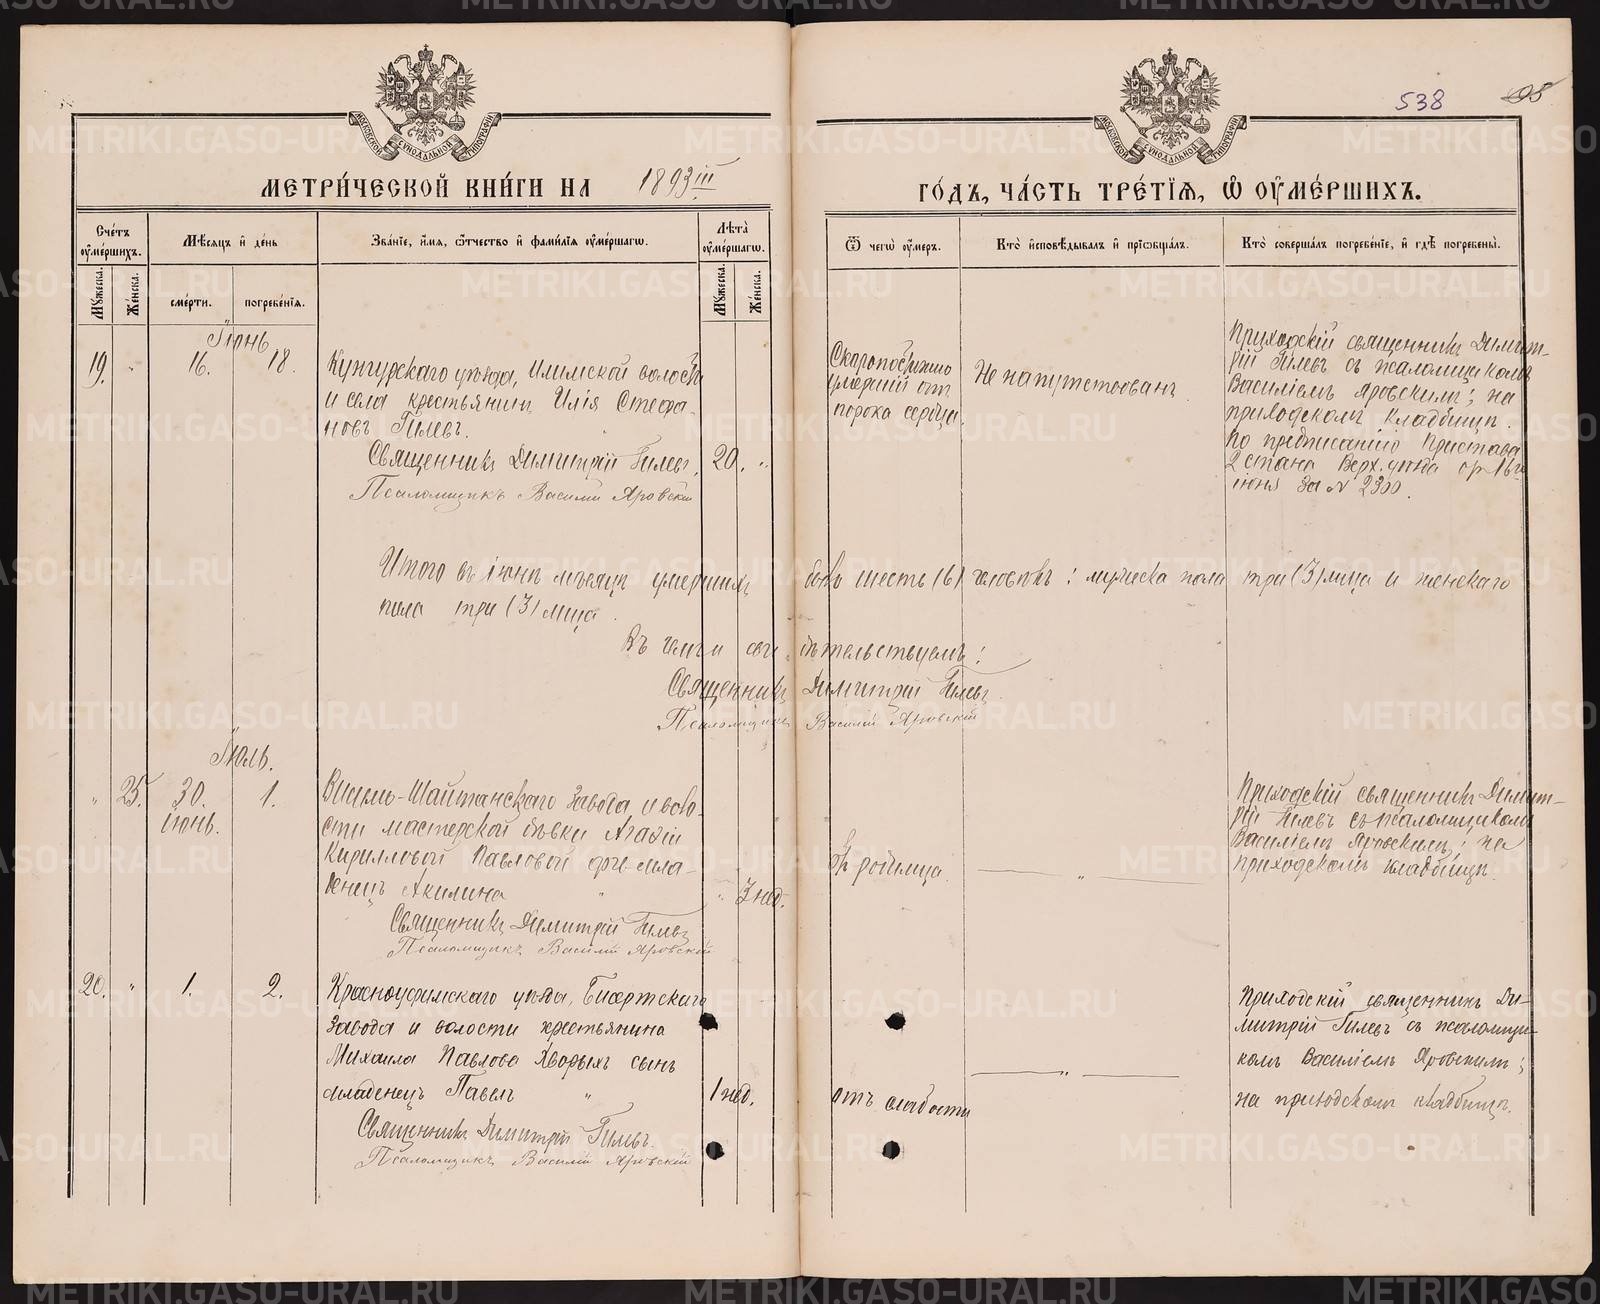 538
95
МЕТРИ́ЧЕСКОЙ КНИ́ГИ НА 1893 III
ГО́ДЪ, ЧА́СТЬ ТРЕ́ТІЯ, Ѿ ОУМЕ́РШИХЪ.
Сче́тъ оуме́ршихъ.
Мѣ́сяцъ и де́нь
Зва́ніе, и́мя, о́тчество и фами́лія оуме́ршагѡ.
Лѣта̀ оуме́ршагѡ.
Мꙋжеска.
Же́нска.
сме́рти.
погребе́нія.
Мꙋжеска.
Же́нска.
Ѿ чегѡ̀ оу́меръ.
Кто̀ исповѣ́дывалъ и пріѡбща́лъ.
Кто̀ соверша́лъ погребе́ніе, и гдѣ̀ погребены̀.
МОСКОВСКОЙ СУНОДАЛЬНОЙ ТИПОГРАФІИ
МОСКОВСКОЙ СУНОДАЛЬНОЙ ТИПОГРАФІИ
Іюнь
19. " 16. 18.
Кунгурскаго уѣзда, Илимской волости
и села крестьянинъ Илія Стефа-
новъ Гилевъ.
Священникъ Димитрій Гилевъ. 20. "
Псаломщикъ Василій Яровскій
Скоропостижно
умершій отъ
порока сердца.
Не напутствованъ
Приходскій священникъ Димит-
рій Гилевъ съ псаломщикомъ
Василіемъ Яровскимъ; на
приходскомъ кладбищѣ.
По предписанію Пристава
2 стана Верх. уѣзда отъ 16го
іюня за № 2300.
Итого въ іюнѣ мѣсяцѣ умершихъ было шесть (6) человѣкъ: мужеска пола три (3) лица и женскаго
пола три (3) лица.
Въ чемъ и свидѣтельствуемъ:
Священникъ Димитрій Гилевъ
Псаломщикъ Василій Яровскій
Іюль.
" 25. 30. 1.
іюнь.
Висимо-Шайтанскаго завода и воло-
сти мастерской дѣвки Агафіи
Кирилловой Павловой дочь мла-
денецъ Акилина " " 3 нед.
Священникъ Димитрій Гилевъ
Псаломщикъ Василій Яровскій
отъ родимца.
"
Приходскій священникъ Димит-
рій Гилевъ съ псаломщикомъ
Василіемъ Яровскимъ; на
приходскомъ кладбищѣ.
20. " 1. 2.
Красноуфимскаго уѣзда, Бисертскаго
завода и волости крестьянина
Михаила Павлова Хворыхъ сынъ
младенецъ Павелъ " 1 нед.
Священникъ Димитрій Гилевъ.
Псаломщикъ Василій Яровскій
отъ слабости
"
Приходскій священникъ Ди-
митрій Гилевъ съ псаломщи-
комъ Василіемъ Яровскимъ;
на приходскомъ кладбищѣ.
METRIKI.GASO-URAL.RU